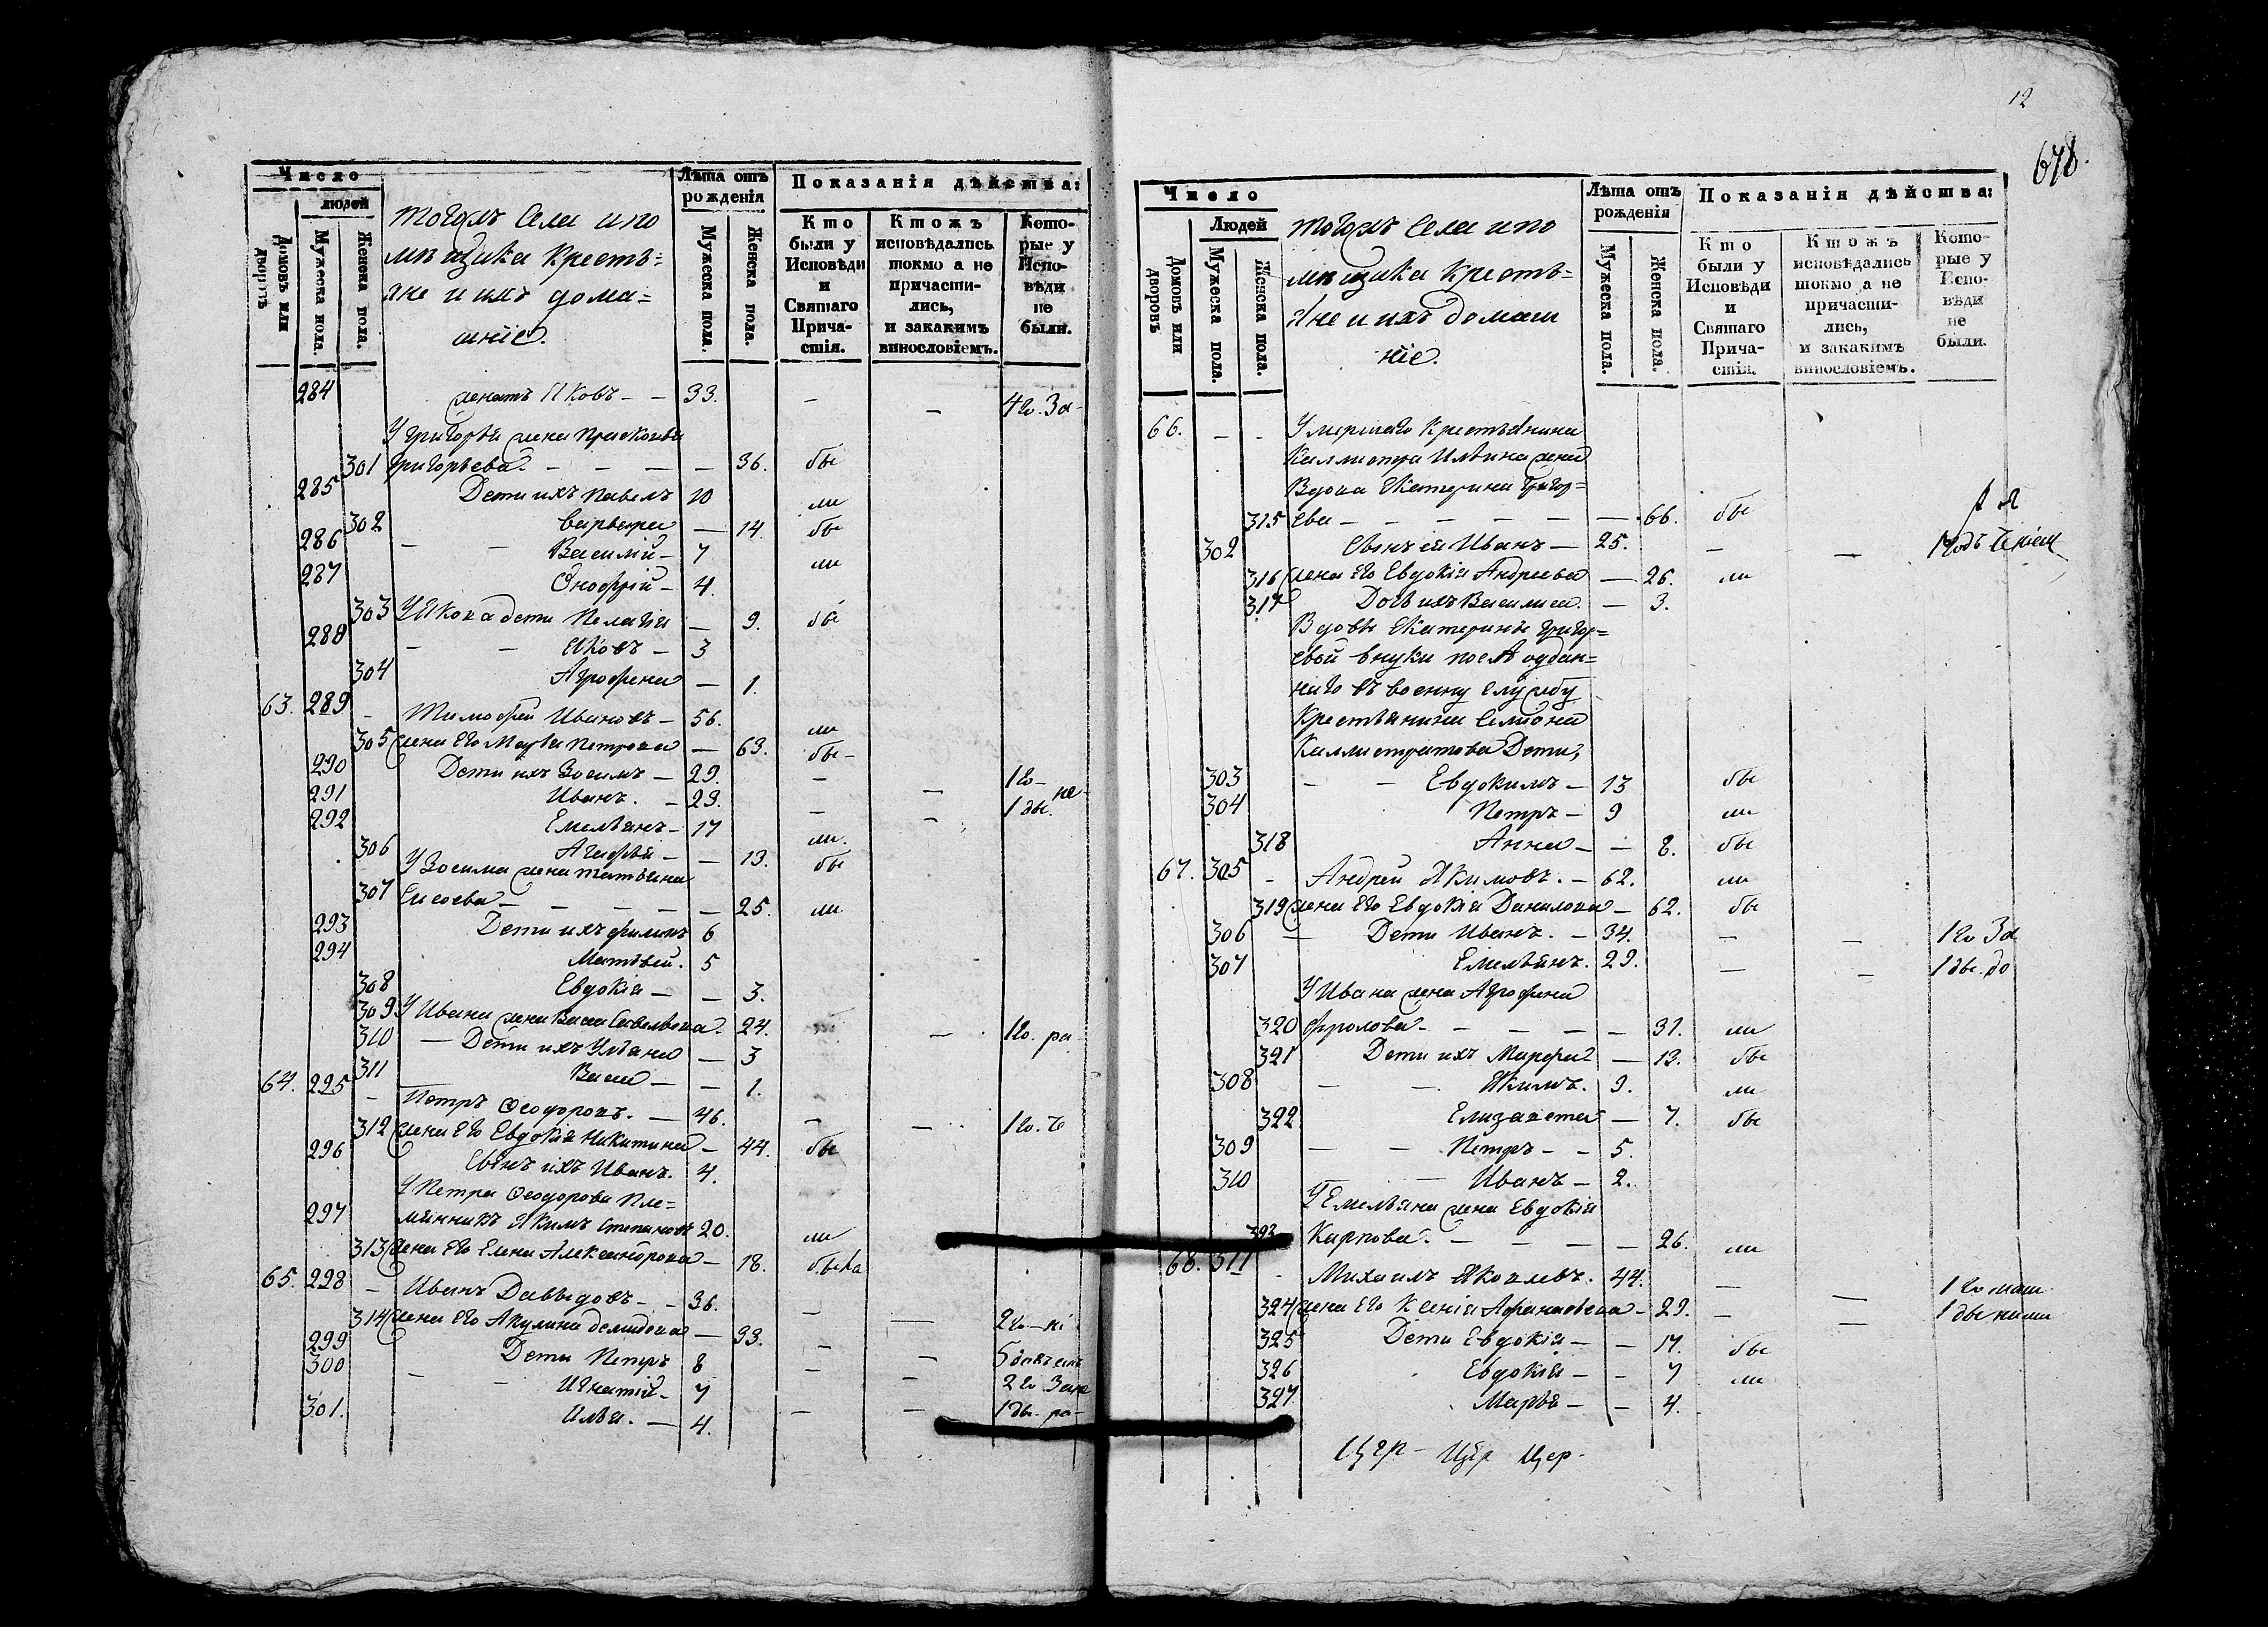 Число
людей
Домовъ или дворовъ
Мужеска пола.
Женска пола.
тогожъ Села и по
мѣщика Крестъ=
яне и ихъ дома=
шніе.
Лѣта отъ рожденія
Мужеска пола.
Женска пола.
Показанія дѣйства:
Кто были у Исповѣди и Святаго Причастія.
Ктожъ исповѣдались токмо а не причастились, и закакимъ винословіемъ.
Которые у Исповѣди не были.
284 Яковъ - - 33. - - 4 го. За-
У Григорья жена Прасковья
301 Григорьева. - - - - 36. бы
285 Дети ихъ Павелъ 10 ли
302 Варвара - 14. бы
286 - - Василий - 7 ли
287 Онофрій - 4.
303 У Якова дети Пелагия - 9. бы
288 - - Яковъ - 3
304 Агрофена - 1.
63. 289 - Тимофей Ивановъ - 56. ли
305 жена Его Марья Петрова - 63. бы-
290 Дети ихъ Зосимъ - 29. - - 1 го-
291 Иванъ. - 23. - - 1 бы. не-
292 Емельянъ - 17 ли.
306 Агафья - - 13. бы
У Зосима жена Татьяна
307 Сысоева - - - - - 25. ли
293 Дети ихъ Филипъ 6
294 Матвей. 5
308 Евдокія - - 3.
309 У Ивана жена Васса Савельева - 24. - 1 го. ра-
310 - Дети ихъ Ульяна - 3
311 Васса - - 1.
64. 295 - Петръ Ѳеодоровъ. - 46. - - 1 го. че
312 жена Его Евдокія Никитина - 44. бы
296 Сынъ ихъ Иванъ. 4.
У Петра Ѳеодорова Пле=
297 мянникъ Якимъ Степановъ 20. ли
313 жена Его Елена Александрова - 18. была
65. 298 - Иванъ Давыдовъ - - 36. - - 2 го - ні
314 жена Его Акулина Демидова - 33. - -
299 Дети Петръ 8 - -
300 - - Игнатій - 7 - 2 го За
301. Илья. - 4. - - 1 бы. ра-
12
678.
Число
Людей
Домовъ или дворовъ
Мужеска пола.
Женска пола.
тогожъ Села и по
мѣщика Крестъ=
яне и ихъ домаш
ніе.
Лѣта отъ рожденія
Мужеска пола.
Женска пола.
Показанія дѣйства:
Кто были у Исповѣди и Святаго Причастія.
Ктожъ исповѣдались токмо а не причастились, и закакимъ винословіемъ.
Которые у Исповѣди не были.
66. - - Умершаго Крестьянина
Каллистра Ильина жена
Вдова Екатерина Григор=
315 Ева - - - - - - 66. бы
302 Сынъ ей Иванъ - 25. - -
316 жена Его Евдокія Андреева - 26. ли
317 Дочь ихъ Василиса. - 3.
Вдовы Екатерины Григор=
евой внуки после оддан=
наго въ военну службу
Крестьянина Семіона
Каллистратова Дети,
303 - - Евдокимъ - 13 бы
304 Петръ - 9 ли
318 Анна - - 8. бы
67. 305 - Андрей Якимовъ. - 62. ли
319 жена Его Евдокія Данилова - 62. бы
306 - Дети Иванъ. - 34. - - 1 го За
307 Емельянъ. 29. - - 1 бы. до
У Ивана жена Агрофена
320 Фролова - - - - - 31. ли
321 Дети ихъ Марфа - 13. бы
308 - - Якимъ. 9. ли
322 Елизавета - 7. бы
309 - - Петръ - - 5.
310 - - Иванъ - 2.
У Емельяна жена Евдокія
323 Карпова. - - - - 26. ли
68. 311 - Михаилъ Яковлевъ. 44. - - 1 го
324 жена Его Ксенія Афанасьева - 29. - - 1 бы
325 Дети Евдокія - - 17. бы
326 Евдокія - - 7 ли
327. Марья - - 4.
Цер - Цер Цер.